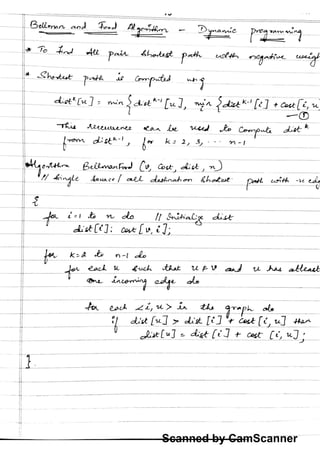 Bellman and Ford Algorithm - Dynamic programming
* To find All pair shortest path with negative weigh
* Shortest path is computed using
dist^k[u] = min { dist^k-1[u], min { dist^k-1[i] + cost[i, u
—①
This recurrence can be used to compute dist^k
from dist^k-1, for k = 2, 3, ---- n-1
Algorithm BellmanFord (v, cost, dist, n)
// Single source / all destination shortest path with -ve edg
{
for i=1 to n do // Initialize dist
dist[i]: cost[v, i];
for k=2 to n-1 do
for each u such that u ≠ v and u has atleast
one incoming edge do
for each <i, u> in the graph do
if dist[u] > dist[i] + cost[i, u] then
dist[u] = dist[i] + cost [i, u];
}
Scanned by CamScanner